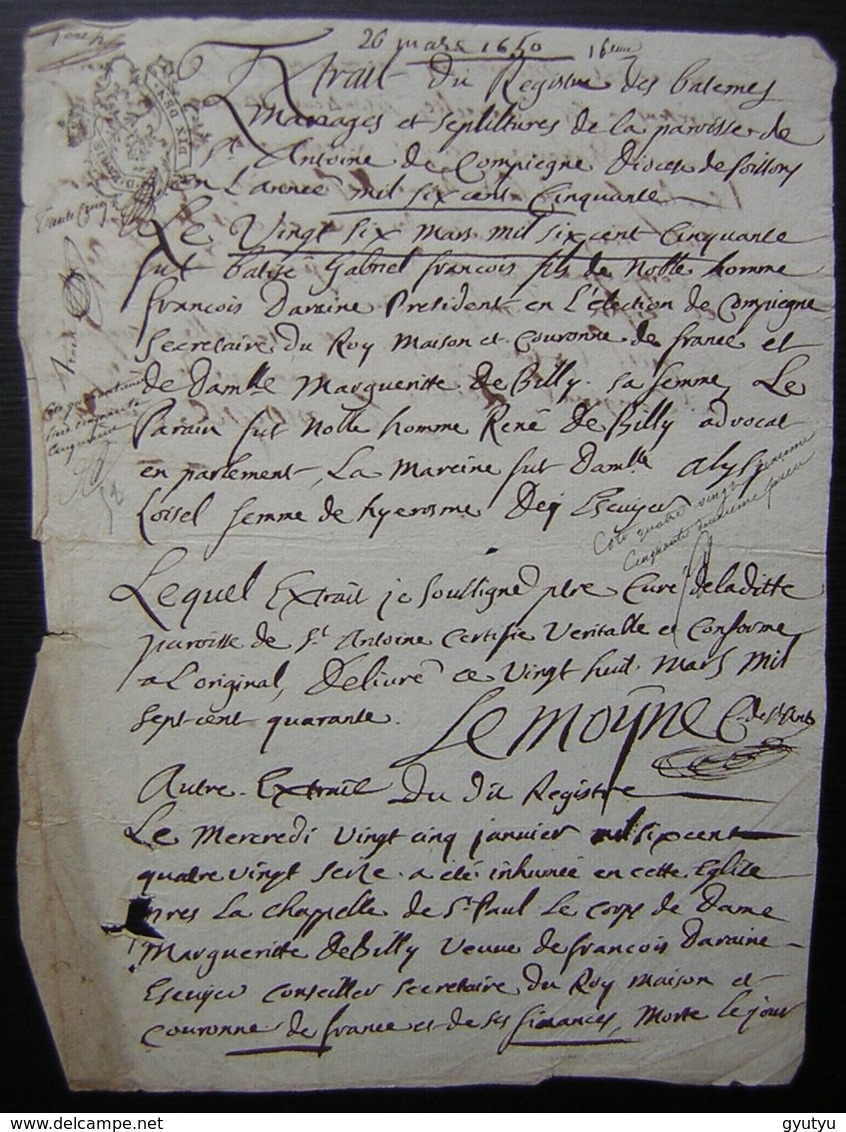 26 mars 1650
Extrait du Registre des batemes
Mariages et sepultures de la paroisse de
St. Antoine de Compiegne Diocese de soissons
en L'année mil six cent Cinquante
Le Vingt six Mars mil six cent Cinquante
fut batisé Gabriel francois fils de Noble homme
francois Daraine President en L'election de Compiegne
Secretaire du Roy Maison et Couronne de france et
de damlle Margueritte de Billy sa femme, Le
Parain fut Noble homme René de Billy advocat
en parlement, La Mareine fut damlle
Loisel femme de hyerosme Escuyer
Cote quatre vingt
Lequel Extrait je soussigné ptre Curé de laditte
paroisse de St. Antoine Certifie Veritable et Conforme
a L'original, Delivré ce Vingt huit Mars Mil
sept cent quarante.
Le Moyne C. de St. Ant.
Autre Extrait Du dit Registre
Le Mercredi Vingt cinq janvier mil six cent
quatre vingt seize a été inhumée en cette Eglise
pres La chapelle de St. Paul Le corps de Dame
Margueritte deBilly Veuve de francois Daraine
Escuyer Conseiller secretaire du Roy Maison et
Couronne de france et de ses finances, Morte le jour
gyutyu